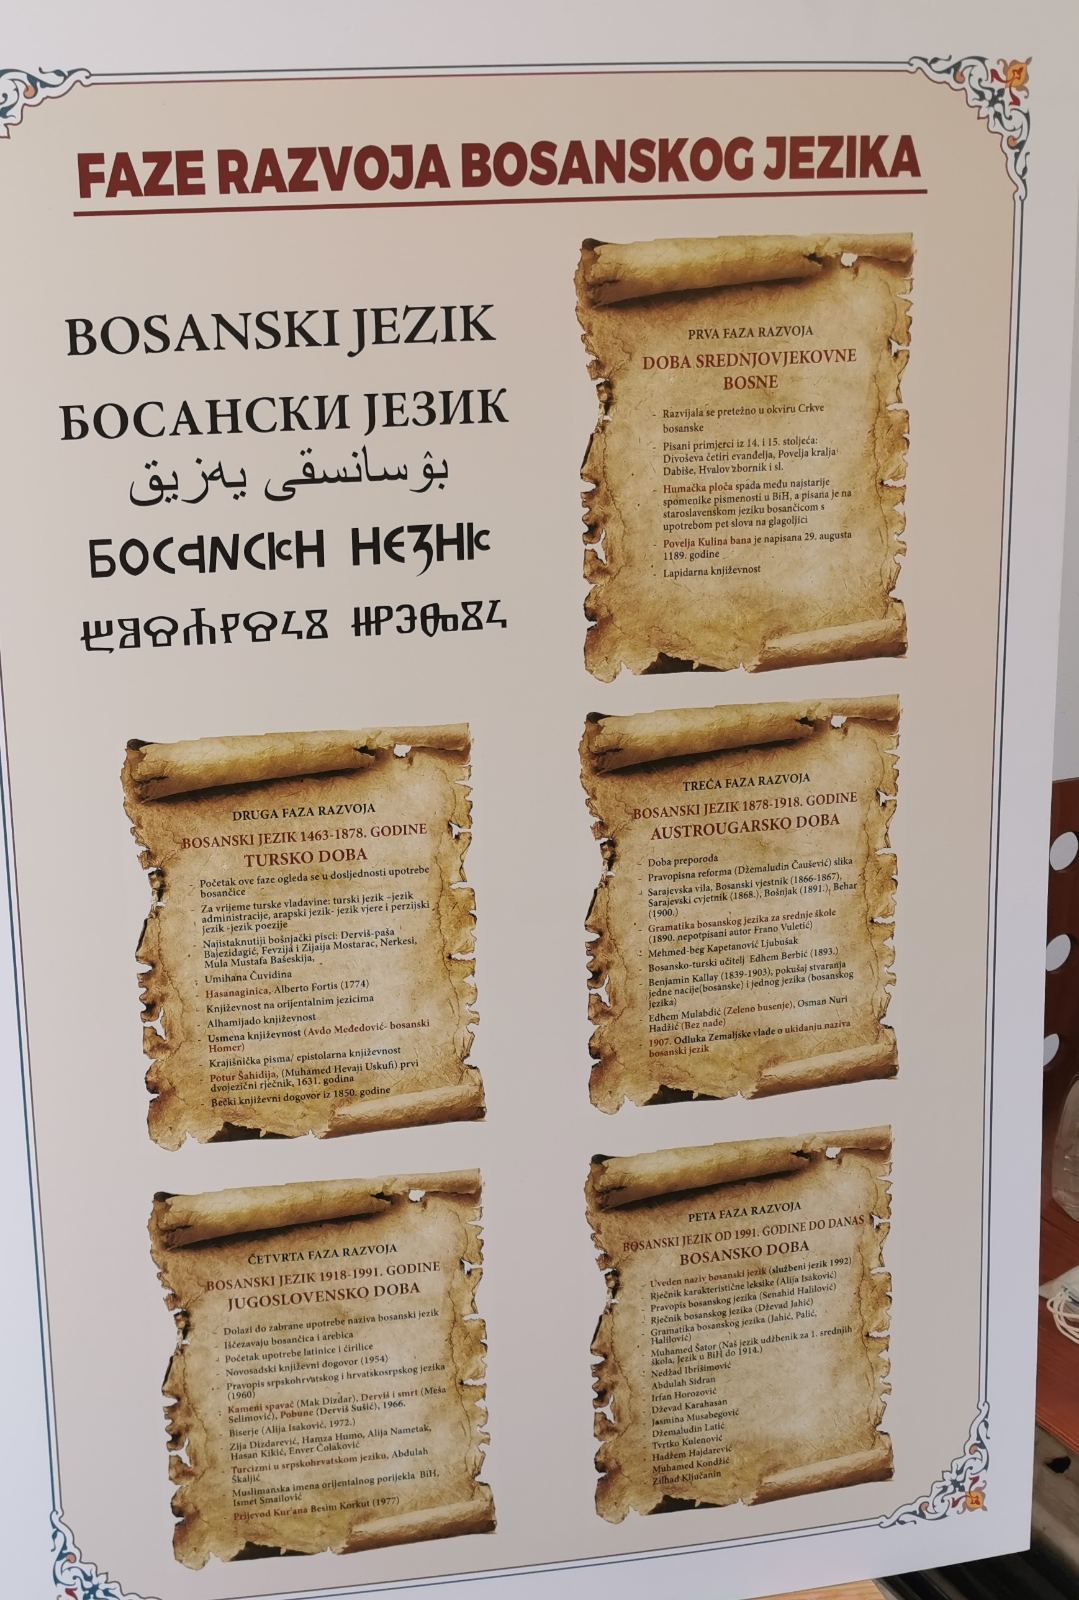 FAZE RAZVOJA BOSANSKOG JEZIKA
BOSANSKI JEZIK
БОСАНСКИ ЈЕЗИК
بۉسانسقى يەزيق
PRVA FAZA RAZVOJA
DOBA SREDNJOVJEKOVNE
BOSNE
- Razvijala se pretežno u okviru Crkve
bosanske
- Pisani primjerci iz 14. i 15. stoljeća:
Divoševa četiri evanđelja, Povelja kralja
Dabiše, Hvalov zbornik i sl.
- Humačka ploča spada među najstarije
spomenike pismenosti u BiH, a pisana je na
staroslavenskom jeziku bosančicom s
upotrebom pet slova na glagoljici
- Povelja Kulina bana je napisana 29. augusta
1189. godine
- Lapidarna književnost
DRUGA FAZA RAZVOJA
BOSANSKI JEZIK 1463-1878. GODINE
TURSKO DOBA
- Početak ove faze ogleda se u dosljednosti upotrebe
bosančice
- Za vrijeme turske vladavine: turski jezik –jezik
administracije, arapski jezik- jezik vjere i perzijski
jezik -jezik poezije
- Najistaknutiji bošnjački pisci: Derviš-paša
Bajezidagić, Fevzija i Zijaija Mostarac, Nerkesi,
Mula Mustafa Bašeskija,
- Umihana Čuvidina
- Hasanaginica, Alberto Fortis (1774)
- Književnost na orijentalnim jezicima
- Alhamijado književnost
- Usmena književnost (Avdo Međedović- bosanski
Homer)
- Krajišnička pisma/ epistolarna književnost
- Potur Šahidija, (Muhamed Hevaji Uskufi) prvi
dvojezični rječnik, 1631. godina
- Bečki književni dogovor iz 1850. godine
TREĆA FAZA RAZVOJA
BOSANSKI JEZIK 1878-1918. GODINE
AUSTROUGARSKO DOBA
- Doba preporoda
- Pravopisna reforma (Džemaludin Čaušević) slika
- Sarajevska vila, Bosanski vjestnik (1866-1867),
Sarajevski cvjetnik (1868.), Bošnjak (1891.), Behar
(1900.)
- Gramatika bosanskog jezika za srednje škole
(1890. nepotpisani autor Frano Vuletić)
- Mehmed-beg Kapetanović Ljubušak
- Bosansko-turski učitelj Edhem Berbić (1893.)
- Benjamin Kallay (1839-1903), pokušaj stvaranja
jedne nacije(bosanske) i jednog jezika (bosanskog
jezika)
- Edhem Mulabdić (Zeleno busenje), Osman Nuri
Hadžić (Bez nade)
- 1907. Odluka Zemaljske vlade o ukidanju naziva
bosanski jezik
ČETVRTA FAZA RAZVOJA
BOSANSKI JEZIK 1918-1991. GODINE
JUGOSLOVENSKO DOBA
- Dolazi do zabrane upotrebe naziva bosanski jezik
- Iščezavaju bosančica i arebica
- Početak upotrebe latinice i ćirilice
- Novosadski književni dogovor (1954)
- Pravopis srpskohrvatskog i hrvatskosrpskog jezika
(1960)
- Kameni spavač (Mak Dizdar), Derviš i smrt (Meša
Selimović), Pobune (Derviš Sušić), 1966.
- Biserje (Alija Isaković, 1972.)
- Zija Dizdarević, Hamza Humo, Alija Nametak,
Hasan Kikić, Enver Čolaković
- Turcizmi u srpskohrvatskom jeziku, Abdulah
Škaljić
- Muslimanska imena orijentalnog porijekla BiH,
Ismet Smailović
- Prijevod Kur'ana Besim Korkut (1977)
PETA FAZA RAZVOJA
BOSANSKI JEZIK OD 1991. GODINE DO DANAS
BOSANSKO DOBA
- Uveden naziv bosanski jezik (službeni jezik 1992)
- Rječnik karakteristične leksike (Alija Isaković)
- Pravopis bosanskog jezika (Senahid Halilović)
- Rječnik bosanskog jezika (Dževad Jahić)
- Gramatika bosanskog jezika (Jahić, Palić,
Halilović)
- Muhamed Šator (Naš jezik udžbenik za 1. srednjih
škola, Jezik u BiH do 1914.)
- Nedžad Ibrišimović
- Abdulah Sidran
- Irfan Horozović
- Dževad Karahasan
- Jasmina Musabegović
- Džemaludin Latić
- Tvrtko Kulenović
- Hadžem Hajdarević
- Muhamed Kondžić
- Zilhad Ključanin